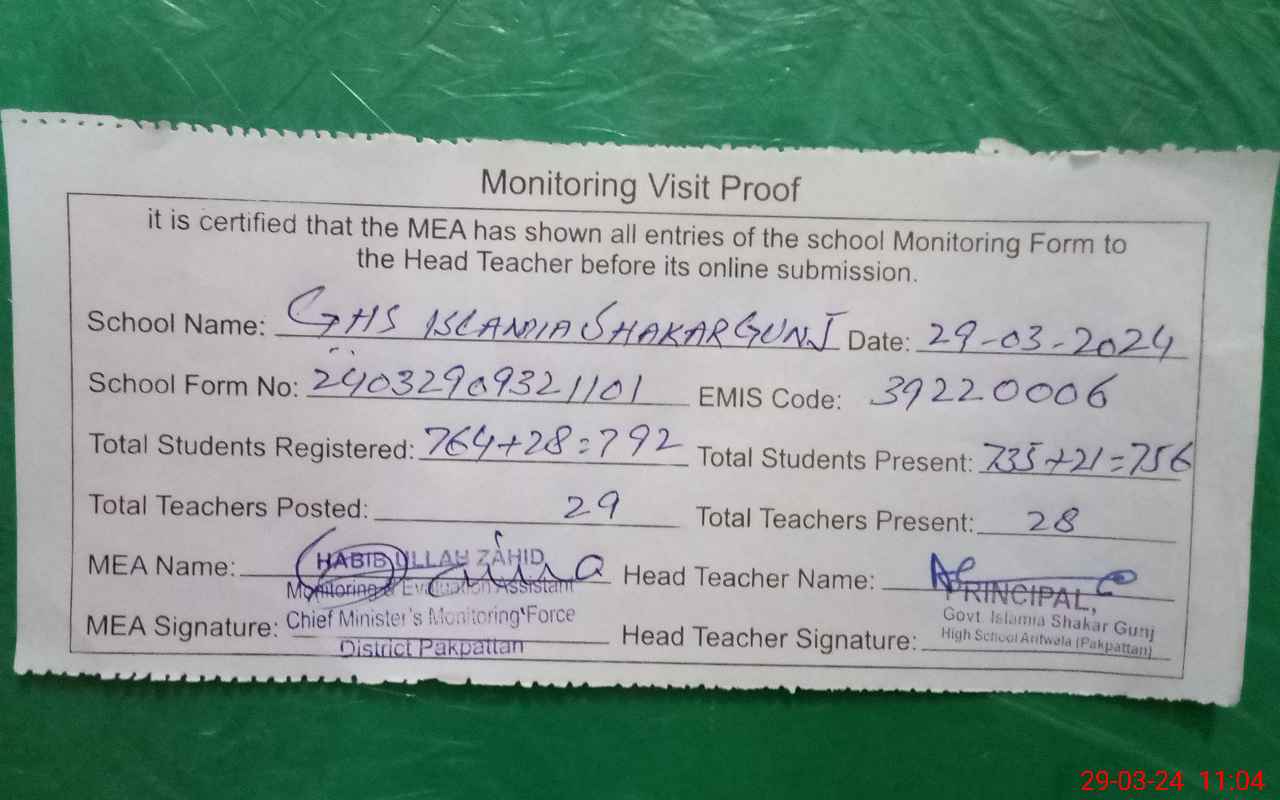 Monitoring Visit Proof
it is certified that the MEA has shown all entries of the school Monitoring Form to
the Head Teacher before its online submission.
School Name: GHS ISLAMIA SHAKAR GUNJ Date: 29-03-2024
School Form No: 24032909321101 EMIS Code: 39220006
Total Students Registered: 764+28=792 Total Students Present: 735+21=756
Total Teachers Posted: 29 Total Teachers Present: 28
MEA Name: HABIB ULLAH ZAHID Head Teacher Name:
Monitoring & Evaluation Assistant PRINCIPAL,
MEA Signature: Chief Minister's Monitoring Force Head Teacher Signature: Govt Islamia Shakar Gunj
District Pakpattan High School Arifwala (Pakpattan)
29-03-24 11:04